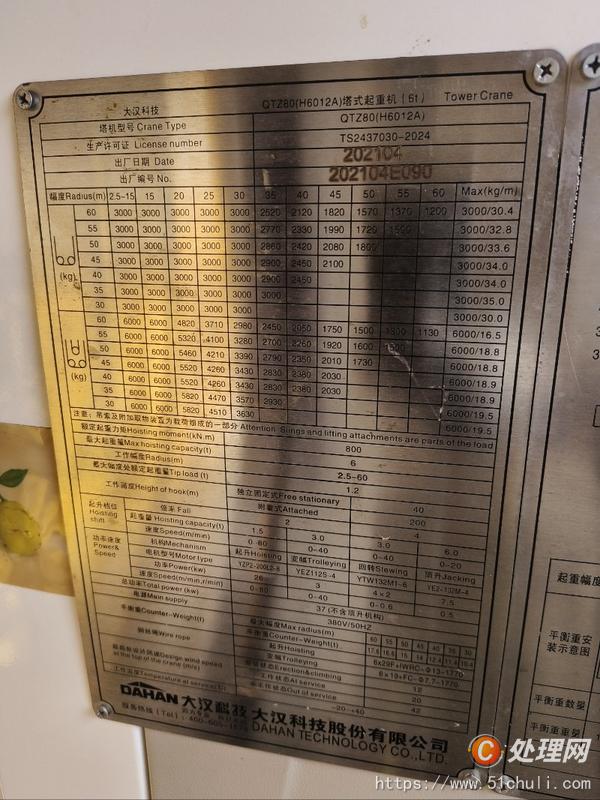 大汉科技 QTZ80(H6012A)塔式起重机(6t) Tower Crane
塔机型号 Crane Type QTZ80(H6012A)
生产许可证 License number TS2437030-2024
出厂日期 Date 202104
出厂编号 No. 202104E090
幅度Radius(m) 2.5~15 15 20 25 30 35 40 45 50 55 60 Max(kg/m)
60 3000 3000 3000 3000 3000 2520 2120 1820 1570 1370 1200 3000/30.4
55 3000 3000 3000 3000 3000 2770 2330 1990 1720 1500 3000/32.8
50 3000 3000 3000 3000 3000 2860 2420 2080 1800 3000/33.6
45 3000 3000 3000 3000 3000 2900 2450 2100 3000/34.0
40 3000 3000 3000 3000 3000 2900 2450 3000/34.0
35 3000 3000 3000 3000 3000 3000 3000/35.0
30 3000 3000 3000 3000 3000 3000/30.0
(kg)
60 6000 6000 4820 3710 2980 2450 2050 1750 1500 1300 1130 6000/16.5
55 6000 6000 5320 4100 3280 2700 2260 1920 1600 1500 6000/18.8
50 6000 6000 5460 4210 3390 2790 2350 2010 1730 6000/18.8
45 6000 6000 5520 4260 3430 2830 2380 2030 6000/18.9
40 6000 6000 5520 4260 3430 2830 2380 6000/18.9
35 6000 6000 5820 4470 3570 2930 6000/19.5
30 6000 6000 5820 4510 3630 6000/19.5
(kg)
注意:吊索及附加取物装置为载荷组成的一部分 Attention Slings and lifting attachments are parts of the load
额定起重力矩Hoisting moment(kN.m) 800
最大起重量Max hoisting capacity(t) 6
工作幅度Radius(m) 2.5-60
最大幅度处额定起重量Tip load(t) 1.2
工作高度Height of hook(m) 独立固定式Free stationary 40
附着式Attached 200
起升档位Hoisting shift 倍率 Fall 2 4
起重量 Hoisting capacity(t) 1.5 3.0 3.0 6.0
速度Speed(m/min) 0~80 0~40 0~40 0~20
功率速度Power& Speed 机构Mechanism 起升Hoisting 变幅Trolleying 回转Slewing 顶升Jacking
电机型号Motor type YZP2-200L2-8 YEZ112S-4 YTW132M1-6 YE2-132M-4
功率Power(kw) 26 3 4×2 7.5
速度Speed(m/min,r/min) 0~80 0~40 0~0.6 0.5
总功率Total power(kw) 37(不含顶升机构)
电源Main supply 380V/50HZ
平衡重Counter-Weight(t) 最大幅度Max radius(m) 60 55 50 45 40 35 30
平衡重Counter-Weight(t)
钢丝绳Wire rope 起升Hoisting 6x29Fi+IWRC-Φ13-1770
变幅Trolleying 6×19+FC-Φ7.7-1770
Design wind speed at the top of the crane(m/s) Erection&climbing 12
工作状态At service 20
Out of service 42
Temperature at service(℃) -20~+40
DAHAN 大汉科技 大汉科技股份有限公司
服务热线(Tel): DAHAN TECHNOLOGY CO.,LTD.
起重幅度
平衡重安装示意图
平衡重数量
平衡重重量
C 处理网
https://www.51chuli.com/